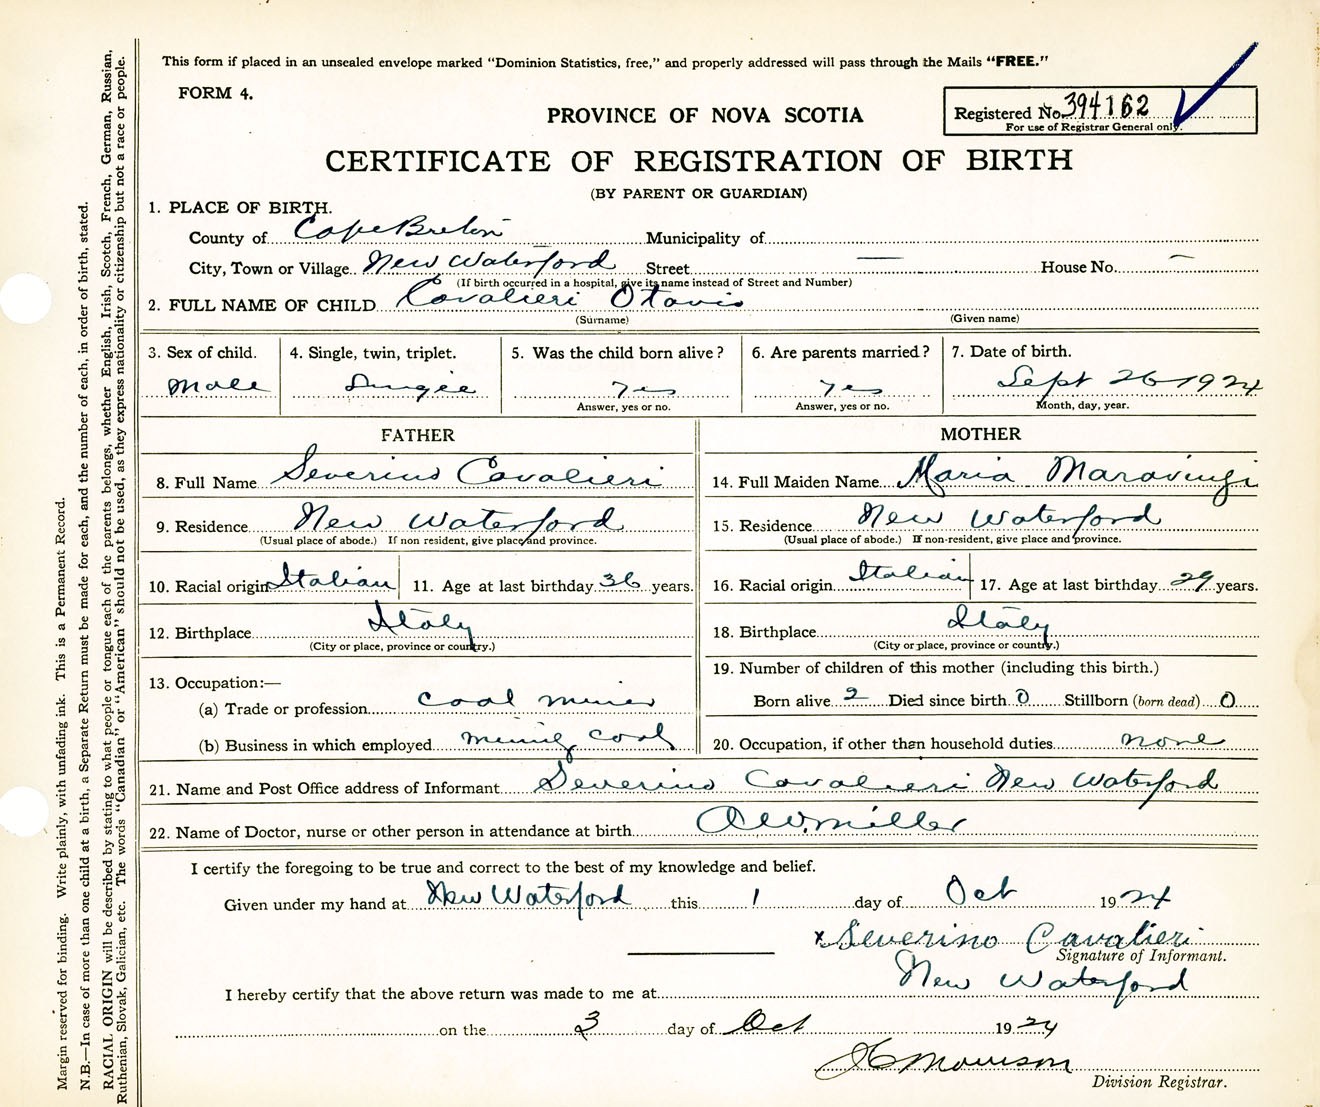 This form if placed in an unsealed envelope marked "Dominion Statistics, free," and properly addressed will pass through the Mails "FREE."
FORM 4.
PROVINCE OF NOVA SCOTIA
Registered No. 394162
For use of Registrar General only.
CERTIFICATE OF REGISTRATION OF BIRTH
(BY PARENT OR GUARDIAN)
1. PLACE OF BIRTH.
County of Cape Breton Municipality of
City, Town or Village New Waterford Street — House No. —
(If birth occurred in a hospital, give its name instead of Street and Number)
2. FULL NAME OF CHILD Cavalieri Otavio
(Surname) (Given name)
3. Sex of child. 4. Single, twin, triplet. 5. Was the child born alive? 6. Are parents married? 7. Date of birth.
Male Single Yes Yes Sept 26 1924
Answer, yes or no. Answer, yes or no. Month, day, year.
FATHER MOTHER
8. Full Name Severino Cavalieri 14. Full Maiden Name Maria
9. Residence New Waterford 15. Residence New Waterford
(Usual place of abode.) If non resident, give place and province. (Usual place of abode.) If non-resident, give place and province.
10. Racial origin Italian 11. Age at last birthday 36 years. 16. Racial origin Italian 17. Age at last birthday 29 years.
12. Birthplace Italy 18. Birthplace Italy
(City or place, province or country.) (City or place, province or country.)
13. Occupation:— 19. Number of children of this mother (including this birth.)
(a) Trade or profession coal miner Born alive 2 Died since birth 0 Stillborn (born dead) 0
(b) Business in which employed mining coal 20. Occupation, if other than household duties none
21. Name and Post Office address of Informant Severino Cavalieri New Waterford
22. Name of Doctor, nurse or other person in attendance at birth A W. Miller
I certify the foregoing to be true and correct to the best of my knowledge and belief.
Given under my hand at New Waterford this 1 day of Oct 1924
x Severino Cavalieri
Signature of Informant.
New Waterford
I hereby certify that the above return was made to me at
on the 3 day of Oct 1924
Morrison
Division Registrar.
Margin reserved for binding. Write plainly, with unfading ink. This is a Permanent Record.
N.B.—In case of more than one child at a birth, a Separate Return must be made for each, and the number of each, in order of birth, stated.
RACIAL ORIGIN will be described by stating to what people or tongue each of the parents belongs, whether English, Irish, Scotch, French, German, Russian,
Ruthenian, Slovak, Galician, etc. The words "Canadian" or "American" should not be used, as they express nationality or citizenship but not a race or people.